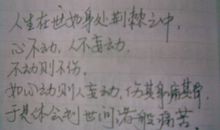 人生在世如身处荆棘之中,
心不动,人不妄动,
不动则不伤。
如心动则人妄动,伤其身痛其骨,
于是体会到世间诸般痛苦